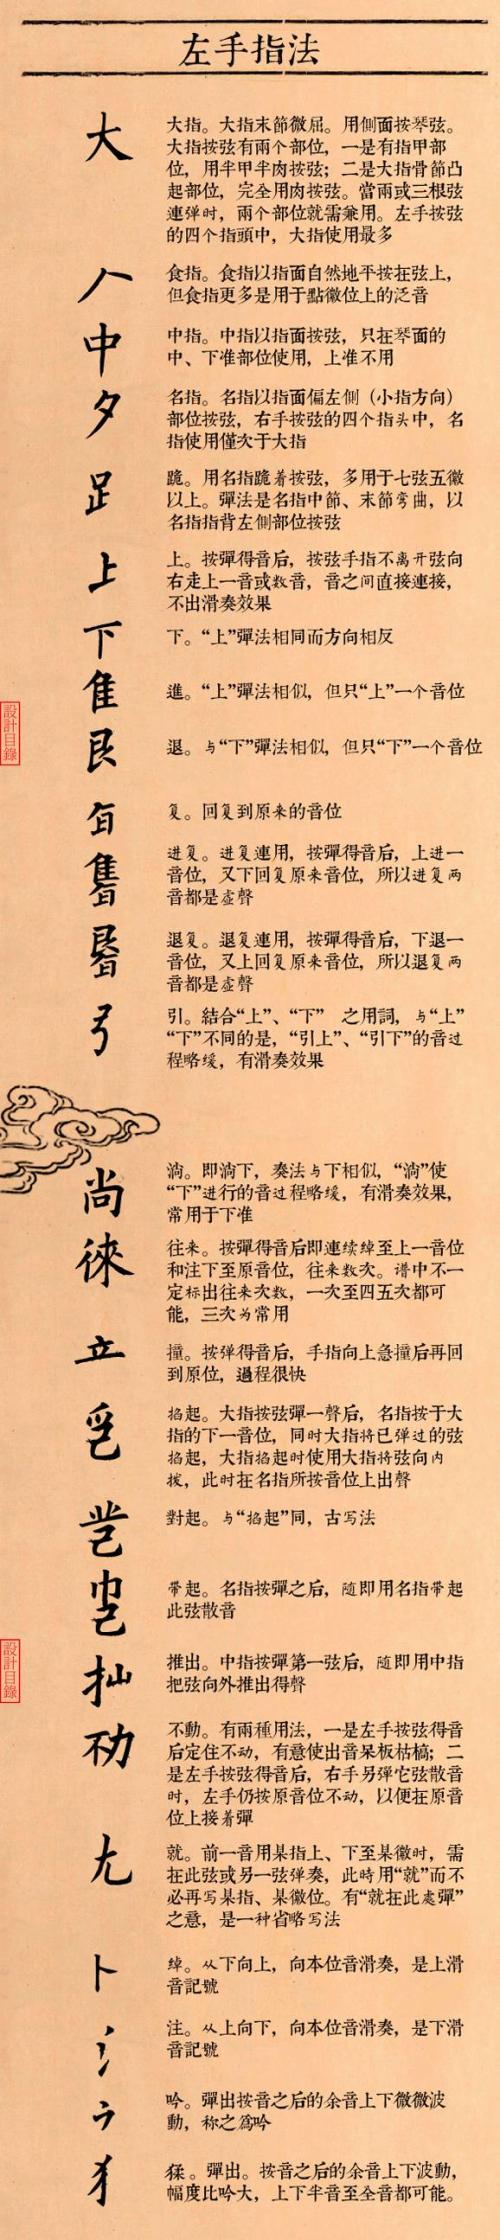 左手指法
大
大指。大指末節微屈。用側面按琴弦。
大指按弦有兩個部位，一是有指甲部
位，用半甲半肉按弦；二是大指骨節凸
起部位，完全用肉按弦。當兩或三根弦
連弹时，兩個部位就需兼用。左手按弦
的四个指頭中，大指使用最多
𠂉
食指。食指以指面自然地平按在弦上，
但食指更多是用于點徽位上的泛音
中
中指。中指以指面按弦，只在琴面的
中、下准部位使用，上准不用
夕
名指。名指以指面偏左側（小指方向）
部位按弦，右手按弦的四个指头中，名
指使用僅次于大指
𧾷
跪。用名指跪着按弦，多用于七弦五徽
以上。彈法是名指中節、末節弯曲，以
名指指背左側部位按弦
上
上。按彈得音后，按弦手指不离开弦向
右走上一音或数音，音之间直接連接，
不出滑奏效果
下
下。“上”彈法相同而方向相反
隹
進。“上”彈法相似，但只“上”一个音位
艮
退。与“下”彈法相似，但只“下”一个音位
复。回复到原来的音位
进复。进复連用，按彈得音后，上进一
音位，又下回复原来音位，所以进复两
音都是虚聲
退复。退复連用，按彈得音后，下退一
音位，又上回复原来音位，所以退复两
音都是虚聲
弓
引。結合“上”、“下” 之用詞，与“上”
“下”不同的是，“引上”、“引下”的音过
程略缓，有滑奏效果
尚
淌。即淌下，奏法与下相似，“淌”使
“下”进行的音过程略缓，有滑奏效果，
常用于下准
徠
往来。按彈得音后即連续绰至上一音位
和注下至原音位，往来数次。谱中不一
定标出往来次数，一次至四五次都可
能，三次为常用
立
撞。按弹得音后，手指向上急撞后再回
到原位，過程很快
掐起。大指按弦彈一聲后，名指按于大
指的下一音位，同时大指将已弹过的弦
掐起，大指掐起时使用大指将弦向内
拨，此时在名指所按音位上出聲
對起。与“掐起”同，古写法
带起。名指按彈之后，随即用名指带起
此弦散音
推出。中指按彈第一弦后，随即用中指
把弦向外推出得聲
不動。有兩種用法，一是左手按弦得音
后定住不动，有意使出音呆板枯槁；二
是左手按弦得音后，右手另弹它弦散音
时，左手仍按原音位不动，以便在原音
位上接着彈
尢
就。前一音用某指上、下至某徽时，需
在此弦或另一弦弹奏，此時用“就”而不
必再写某指、某徽位。有“就在此處彈”
之意，是一种省略写法
卜
绰。从下向上，向本位音滑奏，是上滑
音記號
氵
注。从上向下，向本位音滑奏，是下滑
音記號
吟。彈出按音之后的余音上下微微波
動，称之爲吟
犭
猱。彈出。按音之后的余音上下波動，
幅度比吟大，上下半音至全音都可能。
設計目錄
設計目錄